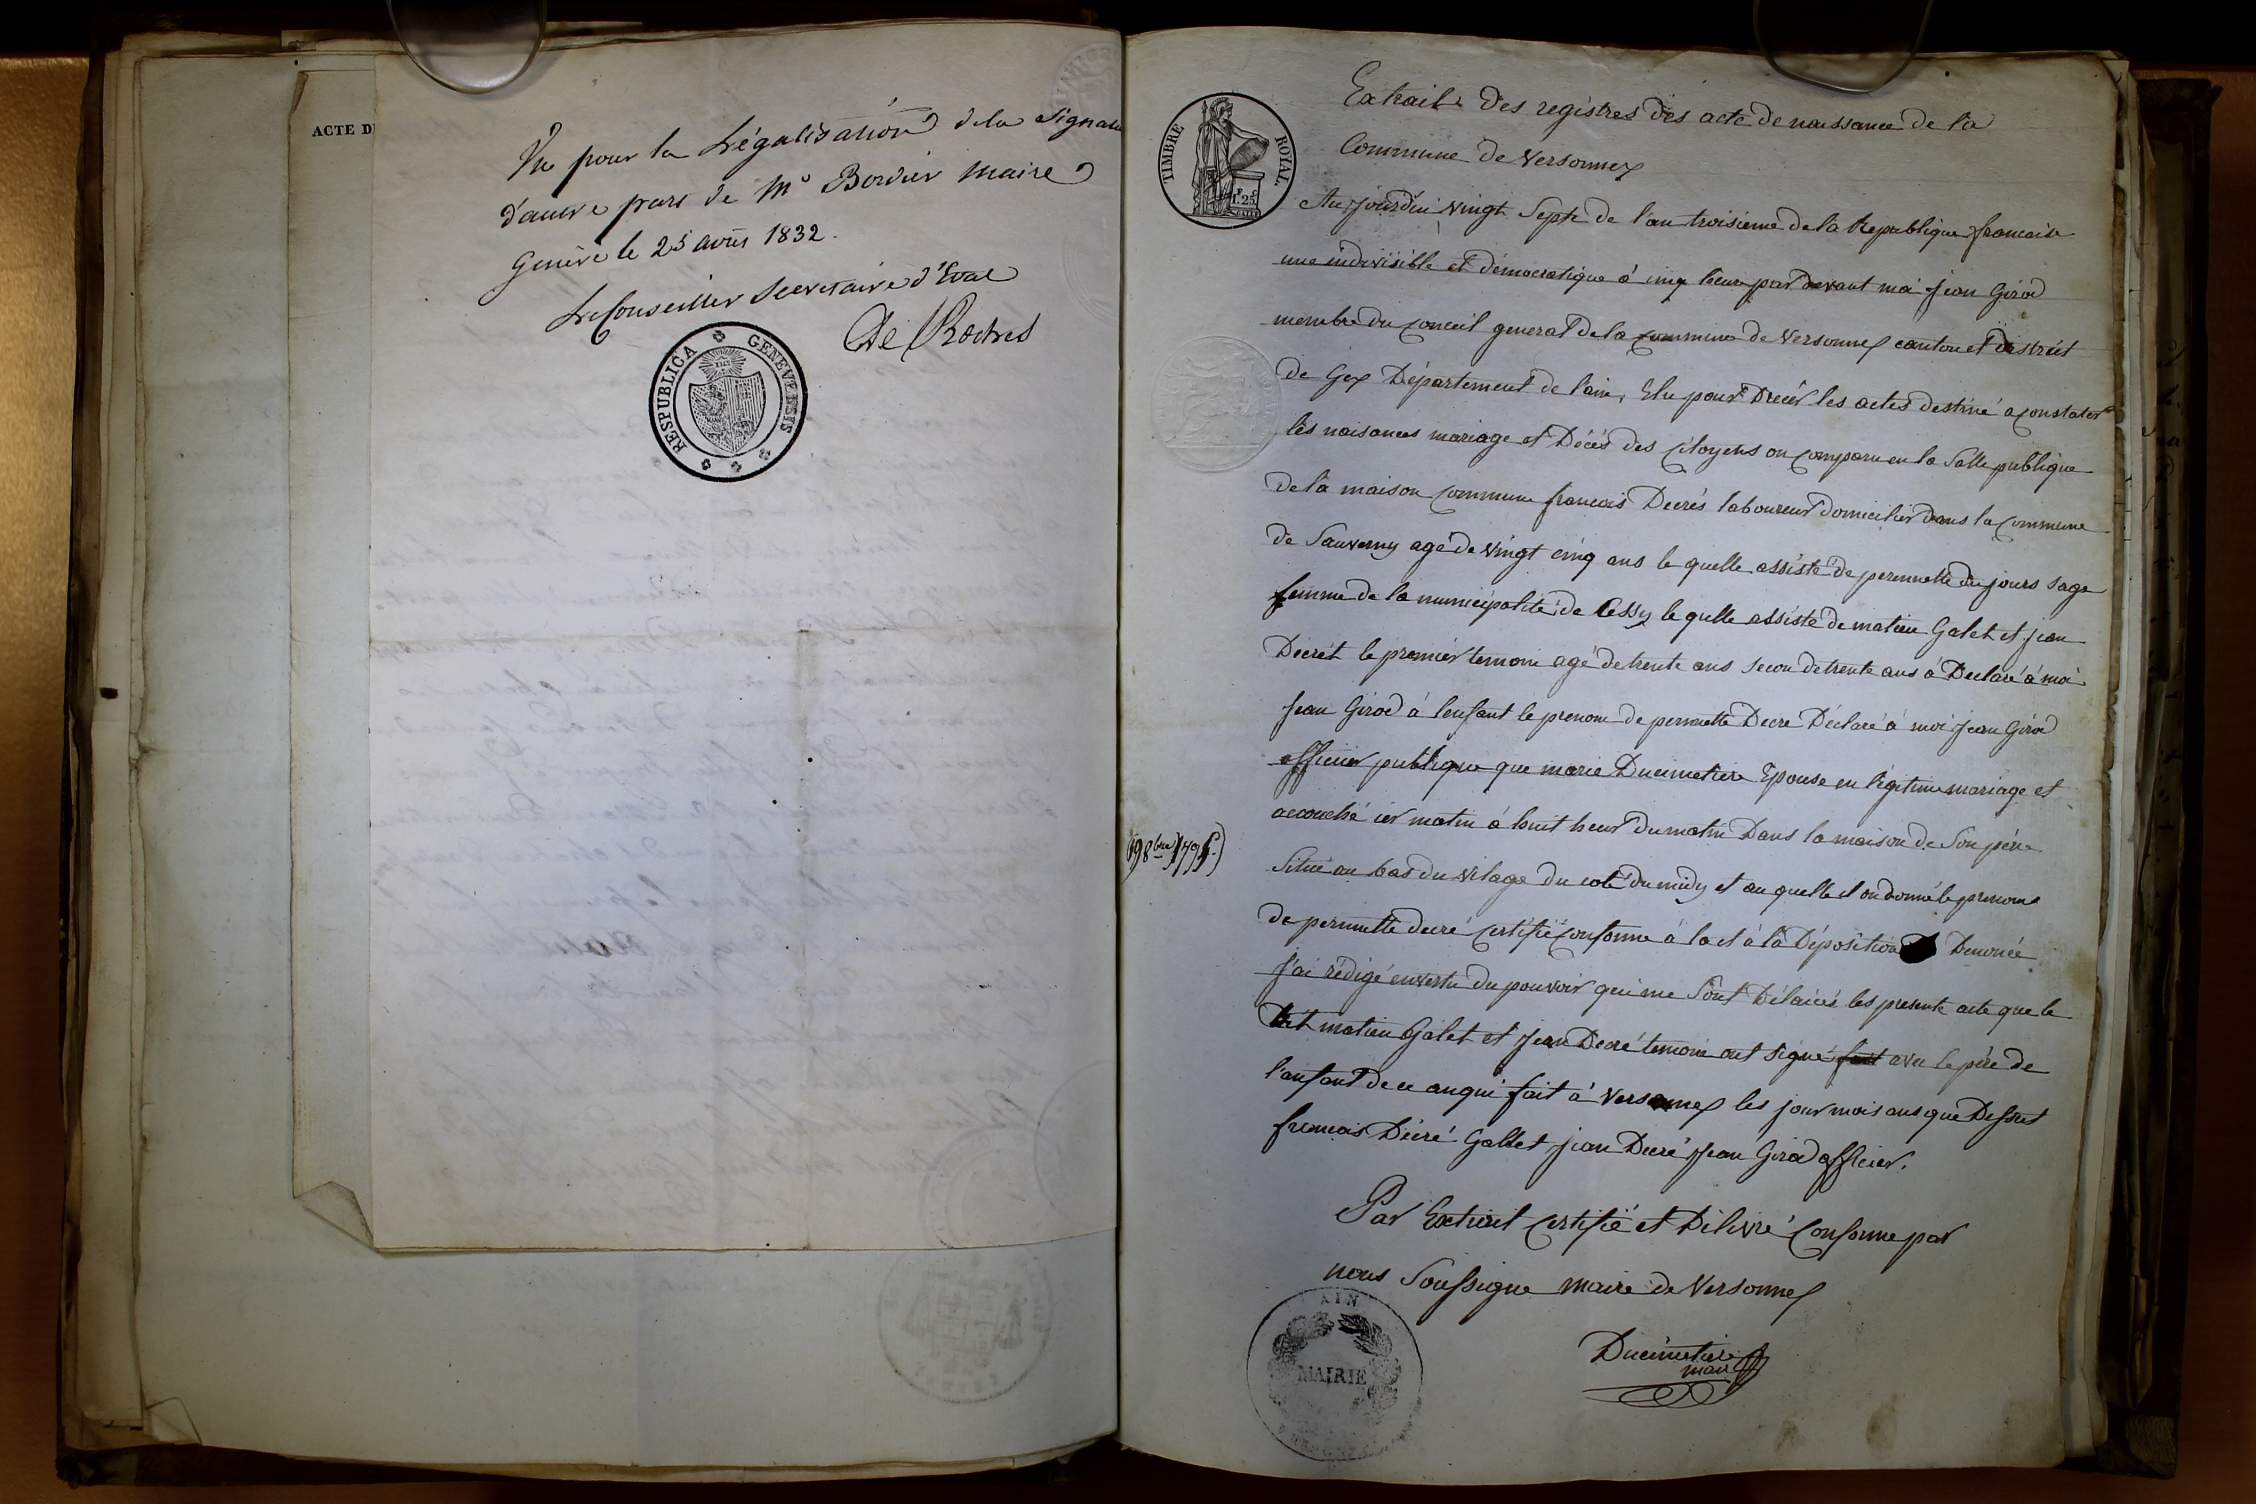 ACTE D
Vu pour la Légalisation de la Signatu
d'autre part de Mr Bordier Maire
Genève le 25 avril 1832.
Le Conseiller Secretaire d'Etat
De Roches
RESPUBLICA GENEVENSIS
TIMBRE ROYAL.
F. C.
1.25
Extrait des registres des acte de naissance de la
Commune de Versonnex
Aujourdui vingt Septe de l'an troisieme de la Republique francaise
une indivisible et démocratique à cinq heure par devant moi Jean Girod
membre du conceil general de la commune de Versonnex canton et district
de Gex Département de l'ain, Elu pour Drécér les actes destiné a constater
les naisances mariage et Décès des citoyens on comparu en la Salle publique
de la maison commune francois Decrés laboureur domicilier dans la commune
de Sauverny agé de vingt cinq ans le quelle assisté de pernnette dujours sage
femme de la municipalité de Cessy le qulle assisté de matieu Galet et jean
Décrét le premier temoin agé de trente ans secon de trente ans à Déclaré à moi
Jean Girod à l'enfant le prenom de pernnette Decre Déclaré à moi Jean Girod
officier publique que marie Ducimetiere Epouse en légitime mariage et
accouché ier matin à huit heur du matin Dans la maison de Son pére
(19 8bre 1794)
Situé au bas du vilage du coté du midy et au quelle il on donné le prenom
de pernnette decré certifié conforme à la et à la Déposition Denoncée
J'ai rédigé en vertu du pouvoir qui me Sont Délaicés les presente acte que le
Dit matieu Galet et Jean Decré temoin ont signé fait avec le pére de
l'anfant de ce anqui fait à Versonnex les jour mois ans que Dessus
francois Décré Gallet jean Decré Jean Girod officier.
Par Extrait certifié et Délivré conforme par
nous Soussigne maire de Versonnex
Ducimetiere
maire
AIN
MAIRIE